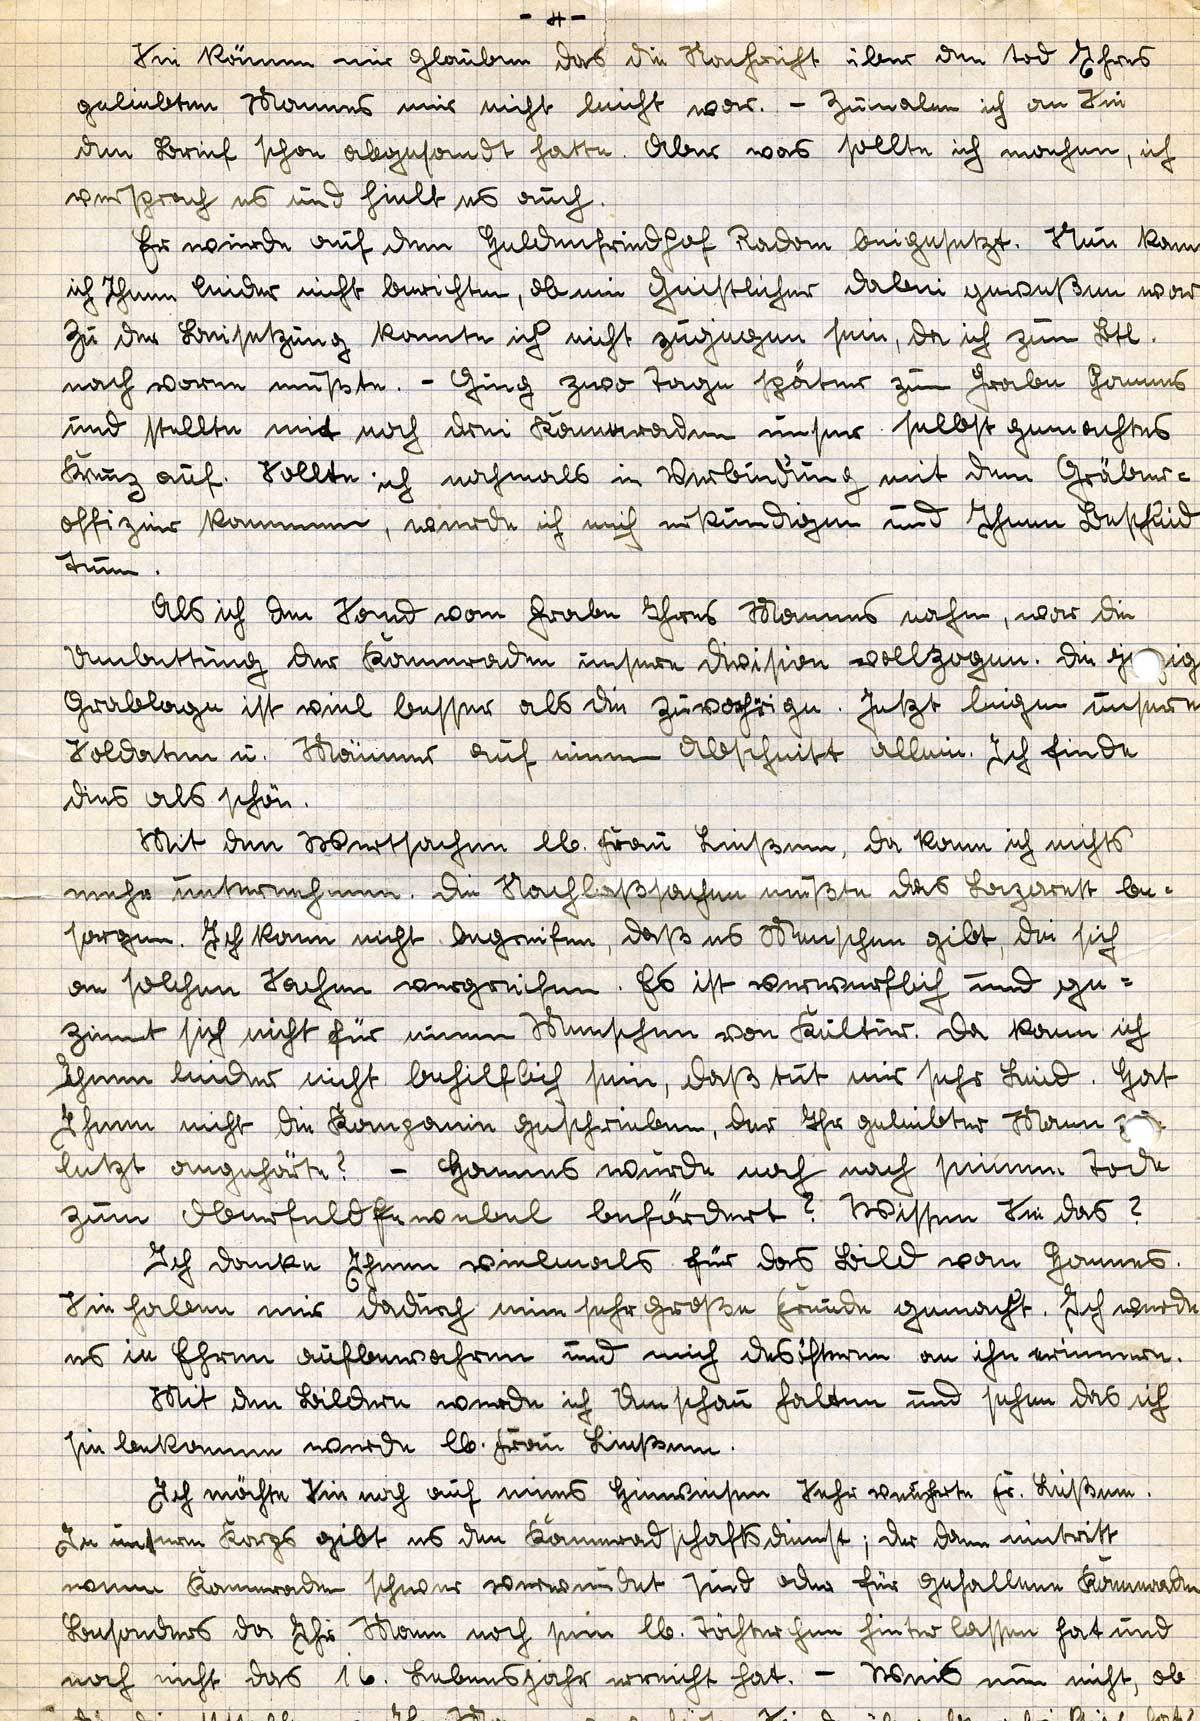 - 4 -
Sie können mir glauben das die Nachricht über den tod Ihres
geliebten Mannes mir nicht leicht war. - Zumalen ich an Sie
den Brief schon abgesandt hatte. Aber was sollte ich machen, ich
versprach es und hielt es auch.
Er wurde auf dem Heldenfriedhof Radom beigesetzt. Nun kann
ich Ihnen leider nicht berichten, ob ein Geistlicher dabei geweßen war
Zu der Beisetzung konnte ich nicht zugegen sein, da ich zum Btl.
nach vorne mußte. - Ging zwo Tage später zum Grabe Hannes
und stellte mit noch drei Kameraden unser selbst gemachtes
Kreuz auf. Sollte ich nochmals in Verbindung mit dem Gräber=
offizier kommen, werde ich mich erkundigen und Ihnen Bescheid
tuen.
Als ich den Sand vom Grabe Ihres Mannes nahm, war die
Umbettung der Kameraden unsere Division vollzogen. Die
Grablage ist viel besser als die zuvorige. Jetzt liegen unsere
Soldaten u. Männer auf einem Abschnitt allein. Ich finde
dies als schön.
Mit den Wertsachen lb. Frau Linßen, da kann ich nichts
mehr unternehmen. Die Nachlaßsachen müßte das Lazarett be=
sorgen. Ich kann nicht begreifen, daß es Menschen gibt, die sich
an solchen Sachen vergreifen. Es ist verwerflich und ge=
ziemt sich nicht für einen Menschen von Kultur. Da kann ich
Ihnen leider nicht behilflich sein, daß tut mir sehr Leid. Hat
Ihnen nicht die Kompanie geschrieben, der Ihr geliebter Mann
letzt angehörte? - Hannes wurde noch nach seinem Tode
zum Oberfeldfewebel befördert? Wissen Sie das?
Ich danke Ihnen vielmals für das Bild vom Hannes.
Sie haben mir dadurch eine sehr große Freude gemacht. Ich werde
es in Ehren aufbewahren und mich desöfteren an ihn erinnern.
Mit den Bildern werde ich Umschau halten und sehen das ich
sie bekommen werde lb. Frau Linßen.
Ich möchte Sie noch auf eines Hinweisen Sehr Fr. Linßen.
In unsern Korps gibt es den Kameradschaftsdienst; der dann eintritt
wenn Kameraden schwer verwundet sind oder für gefallene Kameraden
Besonders da Ihr Mann noch sein lb. Töchterchen hinterlassen hat und
noch nicht das 16. Lebensjahr erreicht hat. - Weis nun nicht, ob